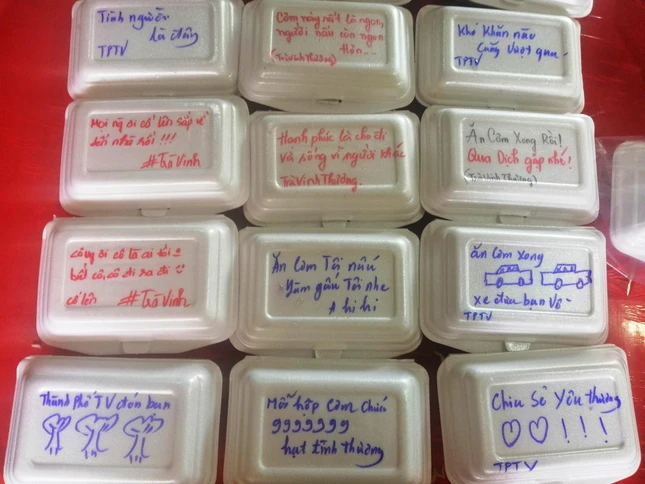 Tình người
là đây
TPTV
Cơm này rất là ngon,
người nấu còn ngon
Hơn...
(Trà Vinh Thương)
Khó Khăn nào
Cũng Vượt qua
TPTV
Mọi ng ơi cố lên sắp về
tới nhà rồi !!!
#Trà Vinh
Hạnh phúc là cho đi
và sống vì người khác
Trà Vinh Thương.
Ăn Cơm Xong Rồi!
Qua Dịch gặp nhé!
(Trà Vinh Thương)
cố lên #Trà Vinh
Ăn Cơm Tôi nấu
Yăm gấu Tôi nhe
A hi hi
ăn cơm xong
xe đưa bạn về
TPTV
Thành Phố TV đón bạn
Mỗi hộp cơm chứa
9999999
hạt tình thương
Chia Sẻ Yêu thương
!!!
TPTV